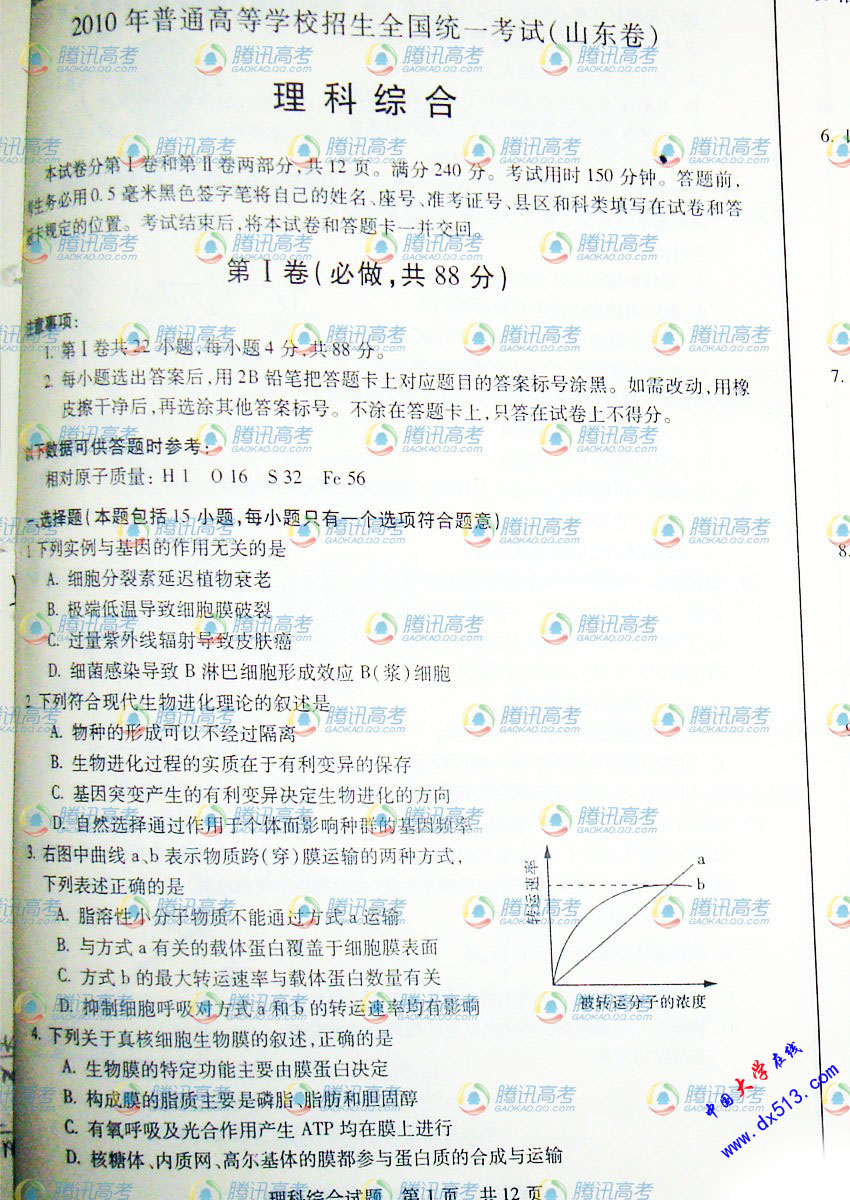 2010 年普通高等学校招生全国统一考试(山东卷)
理科综合
本试卷分第Ⅰ卷和第Ⅱ卷两部分,共 12 页。满分 240 分。考试用时 150 分钟。答题前,
考生务必用 0.5 毫米黑色签字笔将自己的姓名、座号、准考证号、县区和科类填写在试卷和答
题卡规定的位置。考试结束后,将本试卷和答题卡一并交回。
第Ⅰ卷(必做,共 88 分)
注意事项:
1. 第Ⅰ卷共 22 小题,每小题 4 分,共 88 分。
2. 每小题选出答案后,用 2B 铅笔把答题卡上对应题目的答案标号涂黑。如需改动,用橡
皮擦干净后,再选涂其他答案标号。不涂在答题卡上,只答在试卷上不得分。
以下数据可供答题时参考:
相对原子质量: H 1 O 16 S 32 Fe 56
一、选择题(本题包括 15 小题,每小题只有一个选项符合题意)
1.下列实例与基因的作用无关的是
A. 细胞分裂素延迟植物衰老
B. 极端低温导致细胞膜破裂
C. 过量紫外线辐射导致皮肤癌
D. 细菌感染导致 B 淋巴细胞形成效应 B(浆)细胞
2.下列符合现代生物进化理论的叙述是
A. 物种的形成可以不经过隔离
B. 生物进化过程的实质在于有利变异的保存
C. 基因突变产生的有利变异决定生物进化的方向
D. 自然选择通过作用于个体而影响种群的基因频率
3. 右图中曲线 a、b 表示物质跨(穿)膜运输的两种方式,
下列表述正确的是
A. 脂溶性小分子物质不能通过方式 a 运输
B. 与方式 a 有关的载体蛋白覆盖于细胞膜表面
C. 方式 b 的最大转运速率与载体蛋白数量有关
D. 抑制细胞呼吸对方式 a 和 b 的转运速率均有影响
转运速率
a
b
被转运分子的浓度
4. 下列关于真核细胞生物膜的叙述,正确的是
A. 生物膜的特定功能主要由膜蛋白决定
B. 构成膜的脂质主要是磷脂、脂肪和胆固醇
C. 有氧呼吸及光合作用产生 ATP 均在膜上进行
D. 核糖体、内质网、高尔基体的膜都参与蛋白质的合成与运输
理科综合试题 第 1 页 共 12 页
6.
7.
8.
腾讯高考
GAOKAO.QQ.COM
中国大学在线
www.dx513.com